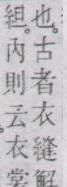 也。古者衣縫解
組。內則云衣裳